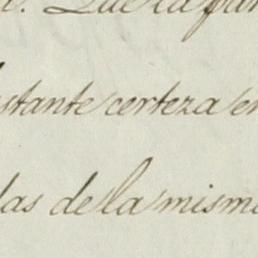 Que la par
stante certeza en
das de la misma